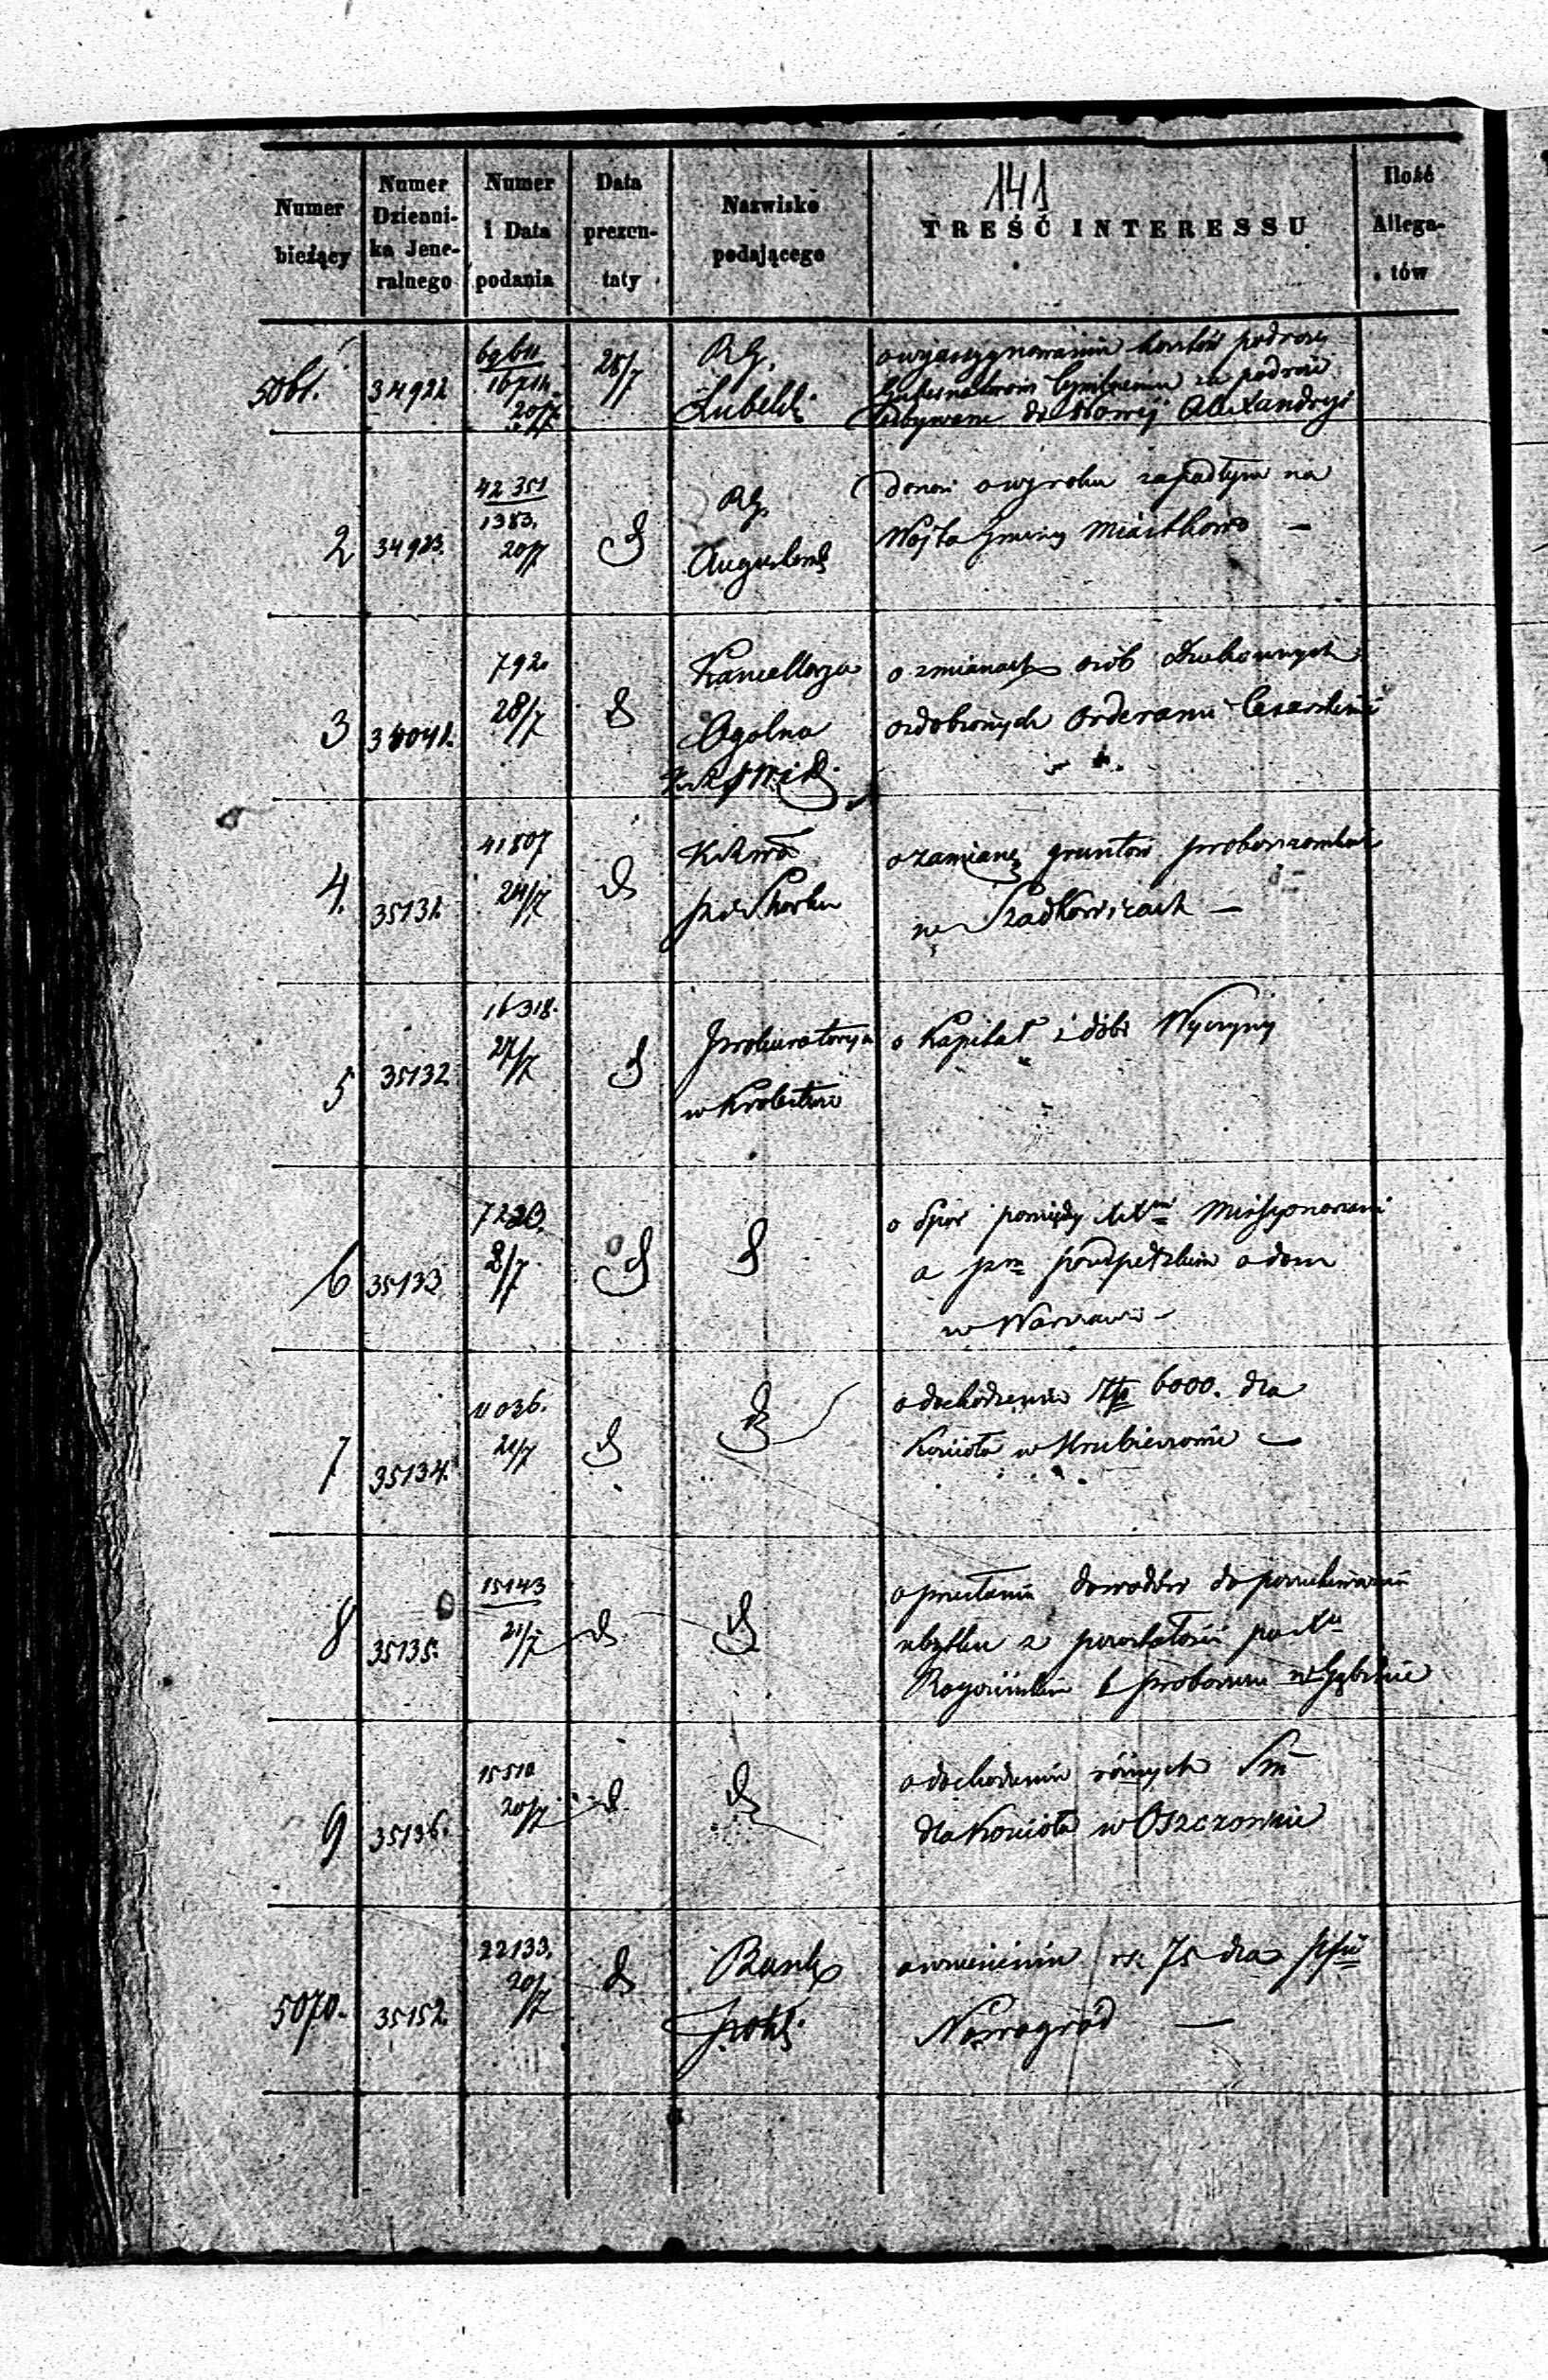 141
Numer bieżący
Numer Dziennika Jeneralnego
Numer i Data podania
Data prezentaty
Nazwisko podającego
TREŚĆ INTERESSU
Ilość Allegatów
5061. 34922 20/7 28/7 RG. Lubelski
o wyassygnowanie kosztów podróży
Gubernatorowi Cywilnemu za podróże
odbywane do Nowej Alexandryi
2 34923. 42351 1383. 20/7 d RG. Augustowski
donosi o wyroku zapadłym na
Wójta Gminy Miastkowo —
3 792. 28/7 d Kancellarya Ogólna
o zmianach osób duchownych
ozdobionych Orderami Cesarskimi
4. 35131. 41807 24/7 d
o zamianę gruntów proboszczowskich
w Szadkowicach —
5 35132 16318. 27/7 d Prokuratorya w Królestwie
o Kapitał z dóbr Wyczyny
6 35133 8/7 d d
o Spór pomiędzy XX Missyonarzami
a o dom
w Warszawie —
7 35134. 11036. 21/7 d d
o dochodzenie 6000. dla
Kościoła w Hrubieszowie —
8 35135. 15143 21/7 d d
o przesłanie dowodów do poszukiwania
z pozostałości po X
b proboszczu w Gąbinie
9 35136. 15510 20/7 d d
o dochodzenie różnych Summ
dla Kościoła w Oszczowie
5070. 35152. 22133. 20/7 d Bank Polski
o wniesieniu rs. 75 dla
Nowogród —